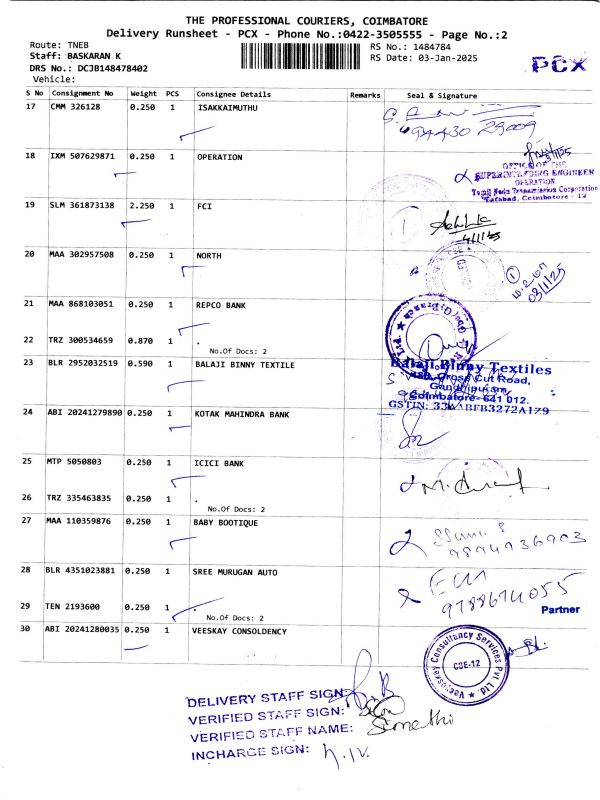 THE PROFESSIONAL COURIERS, COIMBATORE
Delivery Runsheet - PCX - Phone No.:0422-3505555 - Page No.:2
Route: TNEB
RS No.: 1484784
Staff: BASKARAN K
RS Date: 03-Jan-2025
DRS No.: DCJB148478402
Vehicle:
PCX
S No Consignment No Weight PCS Consignee Details Remarks Seal & Signature
17 CMM 326128 0.250 1 ISAKKAIMUTHU
94430 29009
18 IXM 507629871 0.250 1 OPERATION
OFFICE OF THE
SUPERINTENDING ENGINEER
OPERATION
Tamil Nadu Transmission Corporation
Tatabad, Coimbatore - 12
19 SLM 361873138 2.250 1 FCI
4/1/25
20 MAA 302957508 0.250 1 NORTH
03/1/25
21 MAA 868103051 0.250 1 REPCO BANK
22 TRZ 300534659 0.870 1 .
No.Of Docs: 2
23 BLR 2952032519 0.590 1 BALAJI BINNY TEXTILE
Balaji Binny Textiles
Cross Cut Road,
Gandhipuram,
Coimbatore- 641 012.
24 ABI 20241279890 0.250 1 KOTAK MAHINDRA BANK
25 MTP 5050803 0.250 1 ICICI BANK
26 TRZ 335463835 0.250 1 .
No.Of Docs: 2
27 MAA 110359876 0.250 1 BABY BOOTIQUE
9894936903
28 BLR 4351023881 0.250 1 SREE MURUGAN AUTO
9788674055
Partner
29 TEN 2193600 0.250 1 .
No.Of Docs: 2
30 ABI 20241280035 0.250 1 VEESKAY CONSOLDENCY
Veejoyskay Consultancy Services Pvt. Ltd
CBE-12
DELIVERY STAFF SIGN:
VERIFIED STAFF SIGN:
VERIFIED STAFF NAME:
INCHARGE SIGN: